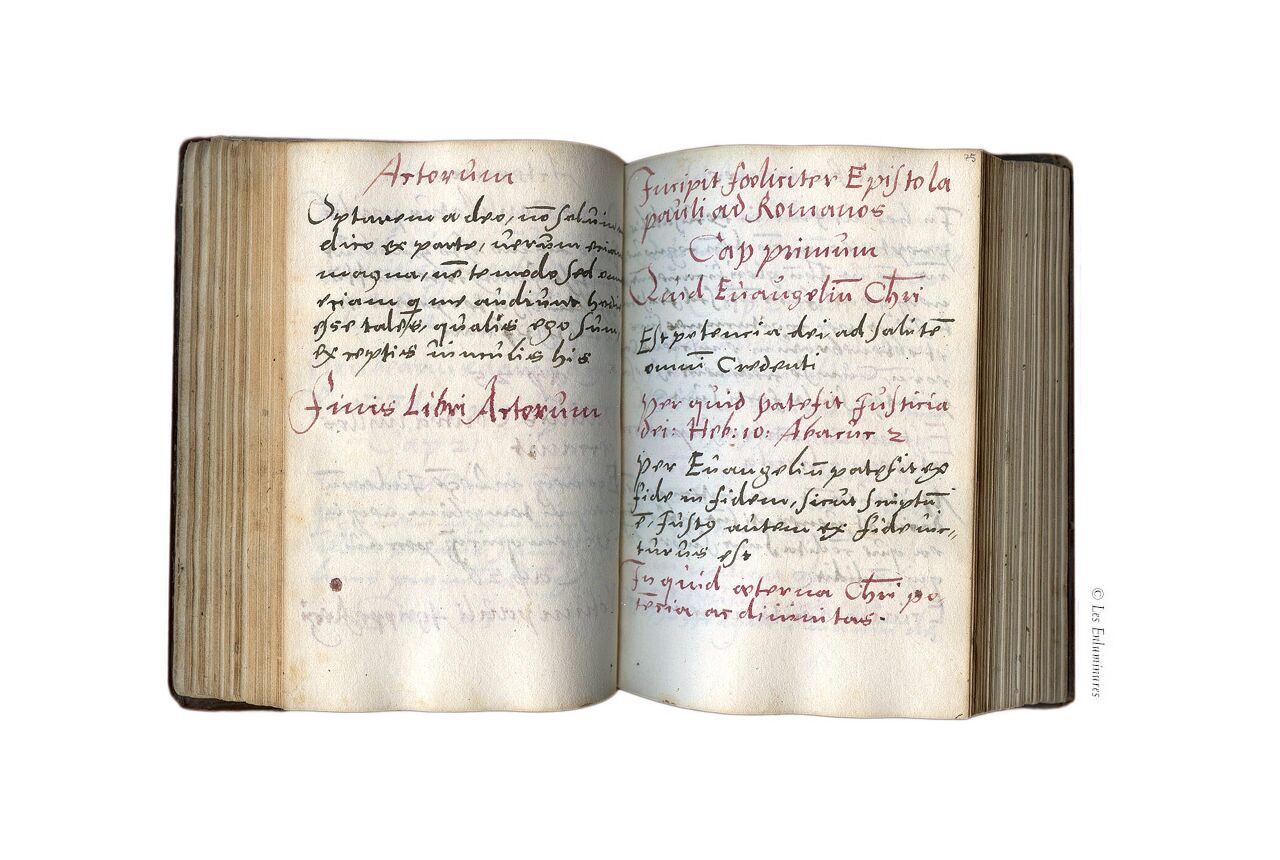 Actorum
Optarem a deo, nō solum in
dico ex parte, verum eciam
magna, nō te modo sed om
eciam q me audiunt hod
esse tales, qualis ego sum,
exceptis vinculis his
Finis Libri Actorum
25
Incipit fœliciter Epistola
pauli ad Romanos
Cap primum
Quid Euangeliū Chri
Est potencia dei ad salutē
omni Credenti
per quid patefit Justicia
dei: Heb: 10: Abacuc 2
per Euangeliū patefit ex
fide in fidem, sicut scriptū
ē, Just9 autem ex fide vic-
turus est
In quid æterna Chri po
tēcia ac divinitas.
© Les Enluminures